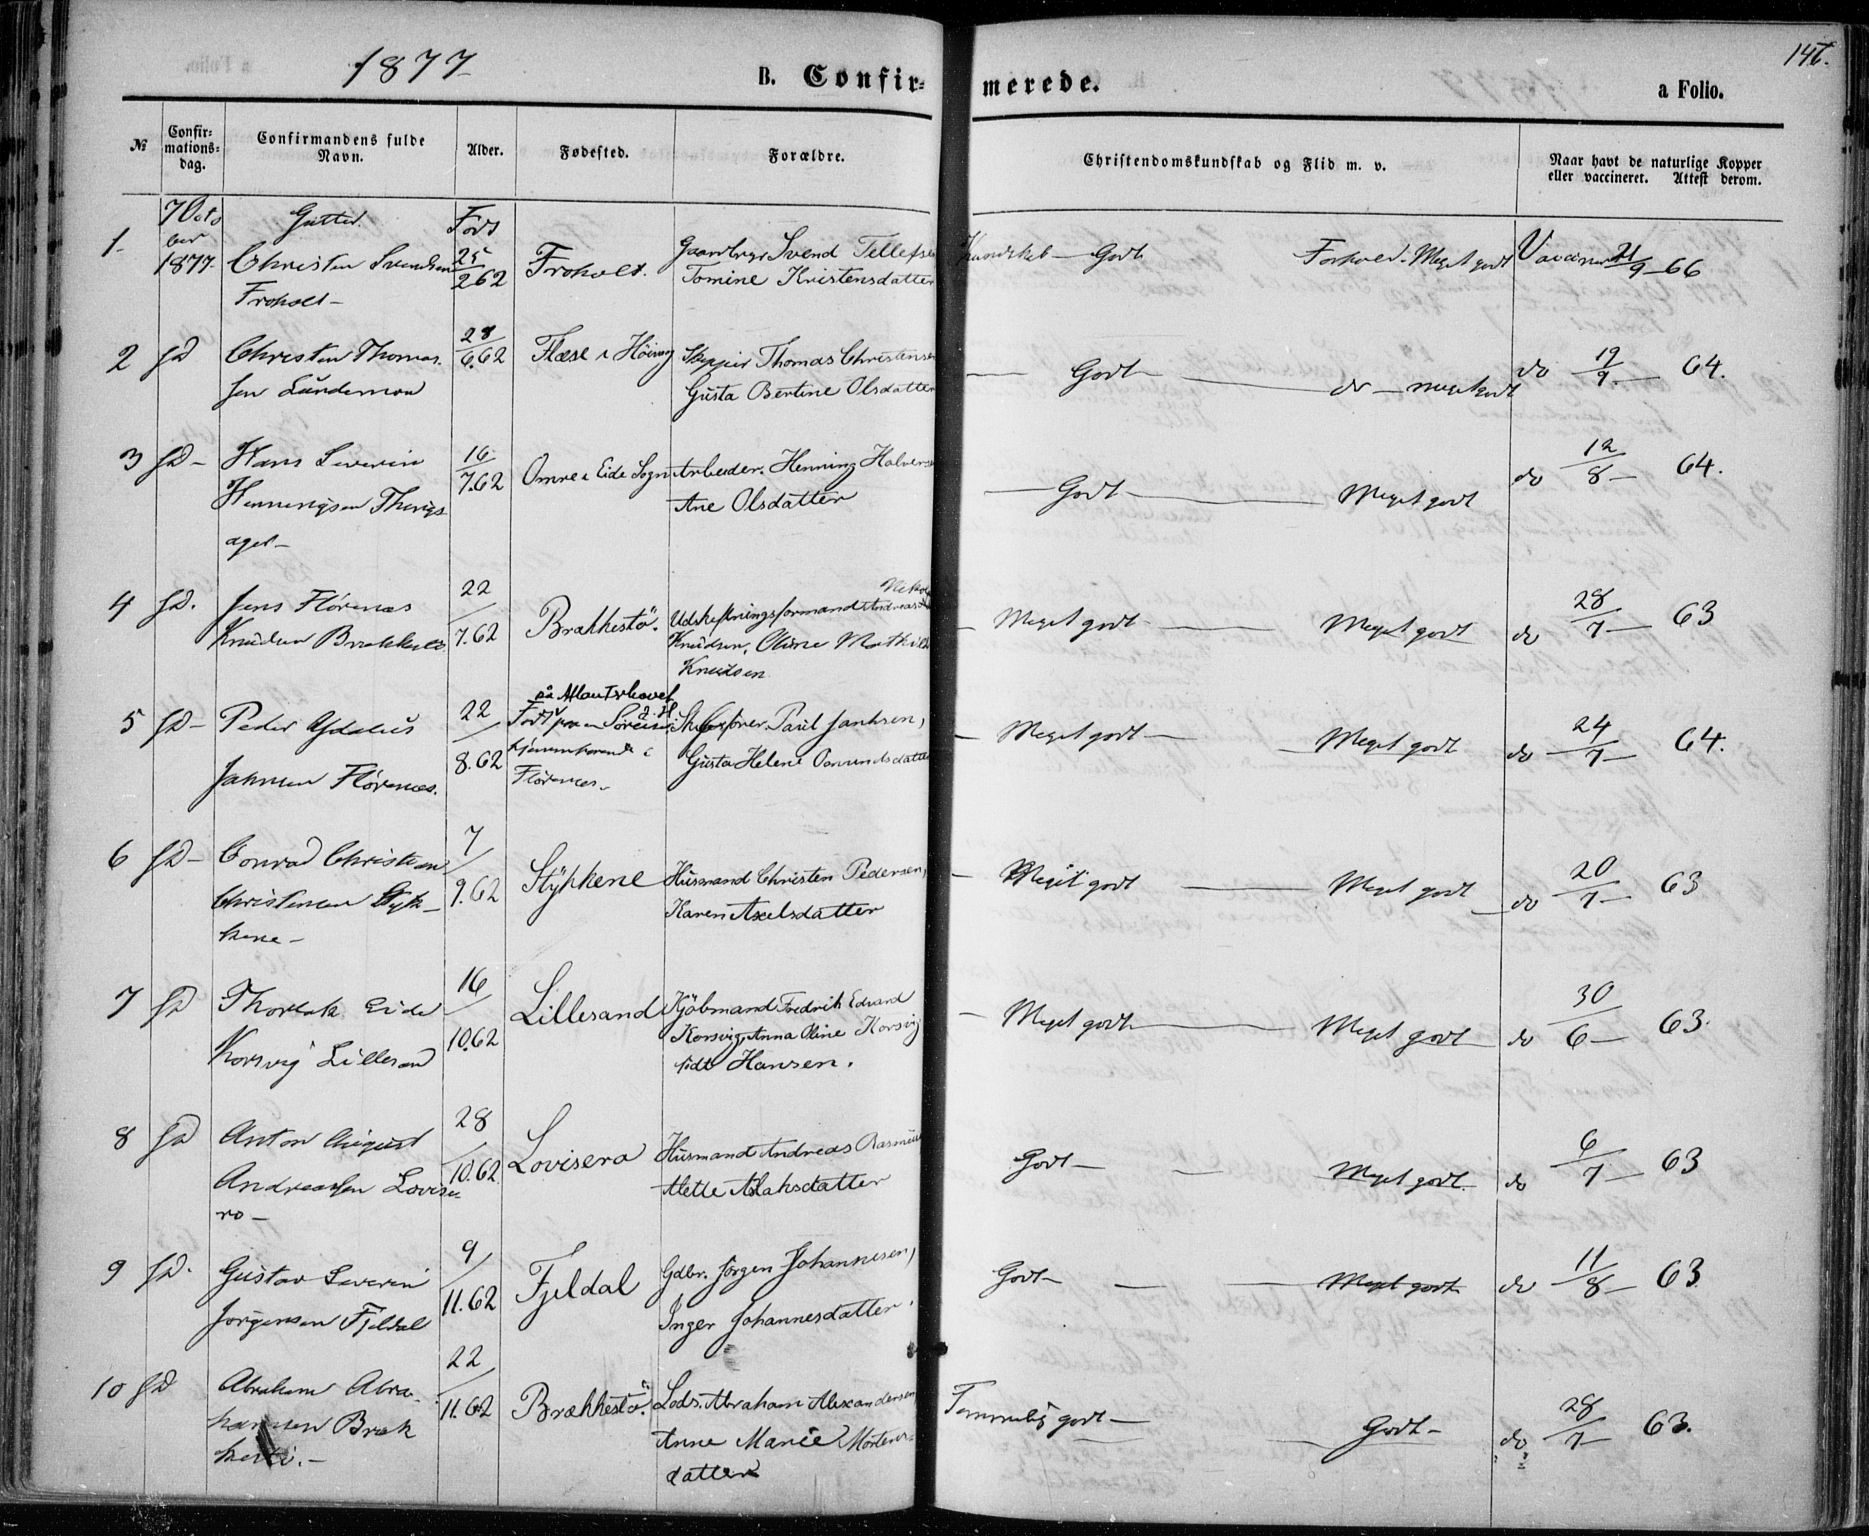 1877
B. Confir-
merede.
a Folio.
№
Confir-
mations-
dag.
Confirmandens fulde
Navn.
Alder.
Fødested.
Forældre.
Christendomskundskab og Flid m. v.
Naar havt de naturlige Kopper
eller vaccineret. Attest derom.
7 Octo
ber
1877
Gutter
Født
1 Christen Svendsen 25/2 62 Froholt. Gaardbrgr Svend Tellefsen Kundskab Godt Forhold. Meget godt Vaccineret 21/9 66
Froholt Tomine Kristensdatter
2 sd Christen Thomas- 28/6.62 Flæse i Høivåg Skipper Thomas Christensen Godt do meget godt do 19/9 64.
sen Lundemoa Gusta Bertine Olsdatter
3 sd Hans Severin 16/7.62 Omre i Eide Sogn Arbeider. Henning Halvorsen Godt Meget godt do 12/8 64.
Henningsen Things Ane Olsdatter
aget
4 sd. Jens Flørenæs 22/7.62 Brækkestö. Udskiftningsformand Andreas Nikolai Meget godt Meget godt do 28/7 63
Knudsen Brækkestö Knudsen, Oline Mathilde
Knudsen
på Atlanterhavet
5 sd Peder 22/8.62 Født Skibsfører Paul Jahnsen, Meget godt Meget godt do 24/7 64.
Jahnsen Flørenæs. hjemmehørende i Gusta Helene Omundsdatter
Flørenæs.
6 sd Conrad Christian 7/9.62 Stykkene Husmand Christen Pedersen, Meget godt Meget godt do 20/7 63
Christensen Styk- Karen Axelsdatter
kene
7 sd Thorlak Eide 16/10.62 Lillesand Kjöbmand Fredrik Edvard Meget godt Meget godt do 30/6 63.
Korsvig Lillesand Korsvig, Anna Oline Korsvig
födt Hansen.
8 sd Anton August 28/10.62 Lovisero Husmand Andreas Rasmus Godt Meget godt. do 6/7 63
Andreassen Lovise Mette Aslaksdatter
ro
9 sd. Gustav Severin 9/11.62 Fjeldal Gdbr. Jörgen Johannesen, Godt Meget godt do 11/8 63
Jörgensen Fjeldal Inger Johannesdatter.
10 sd Abraham Abra- 22/11.62 Brækkestö. Lods. Abraham Alexandersen Temmelig godt Godt do 28/7 63.
hamsen Bræk Anne Marie Mortens-
kestö. datter